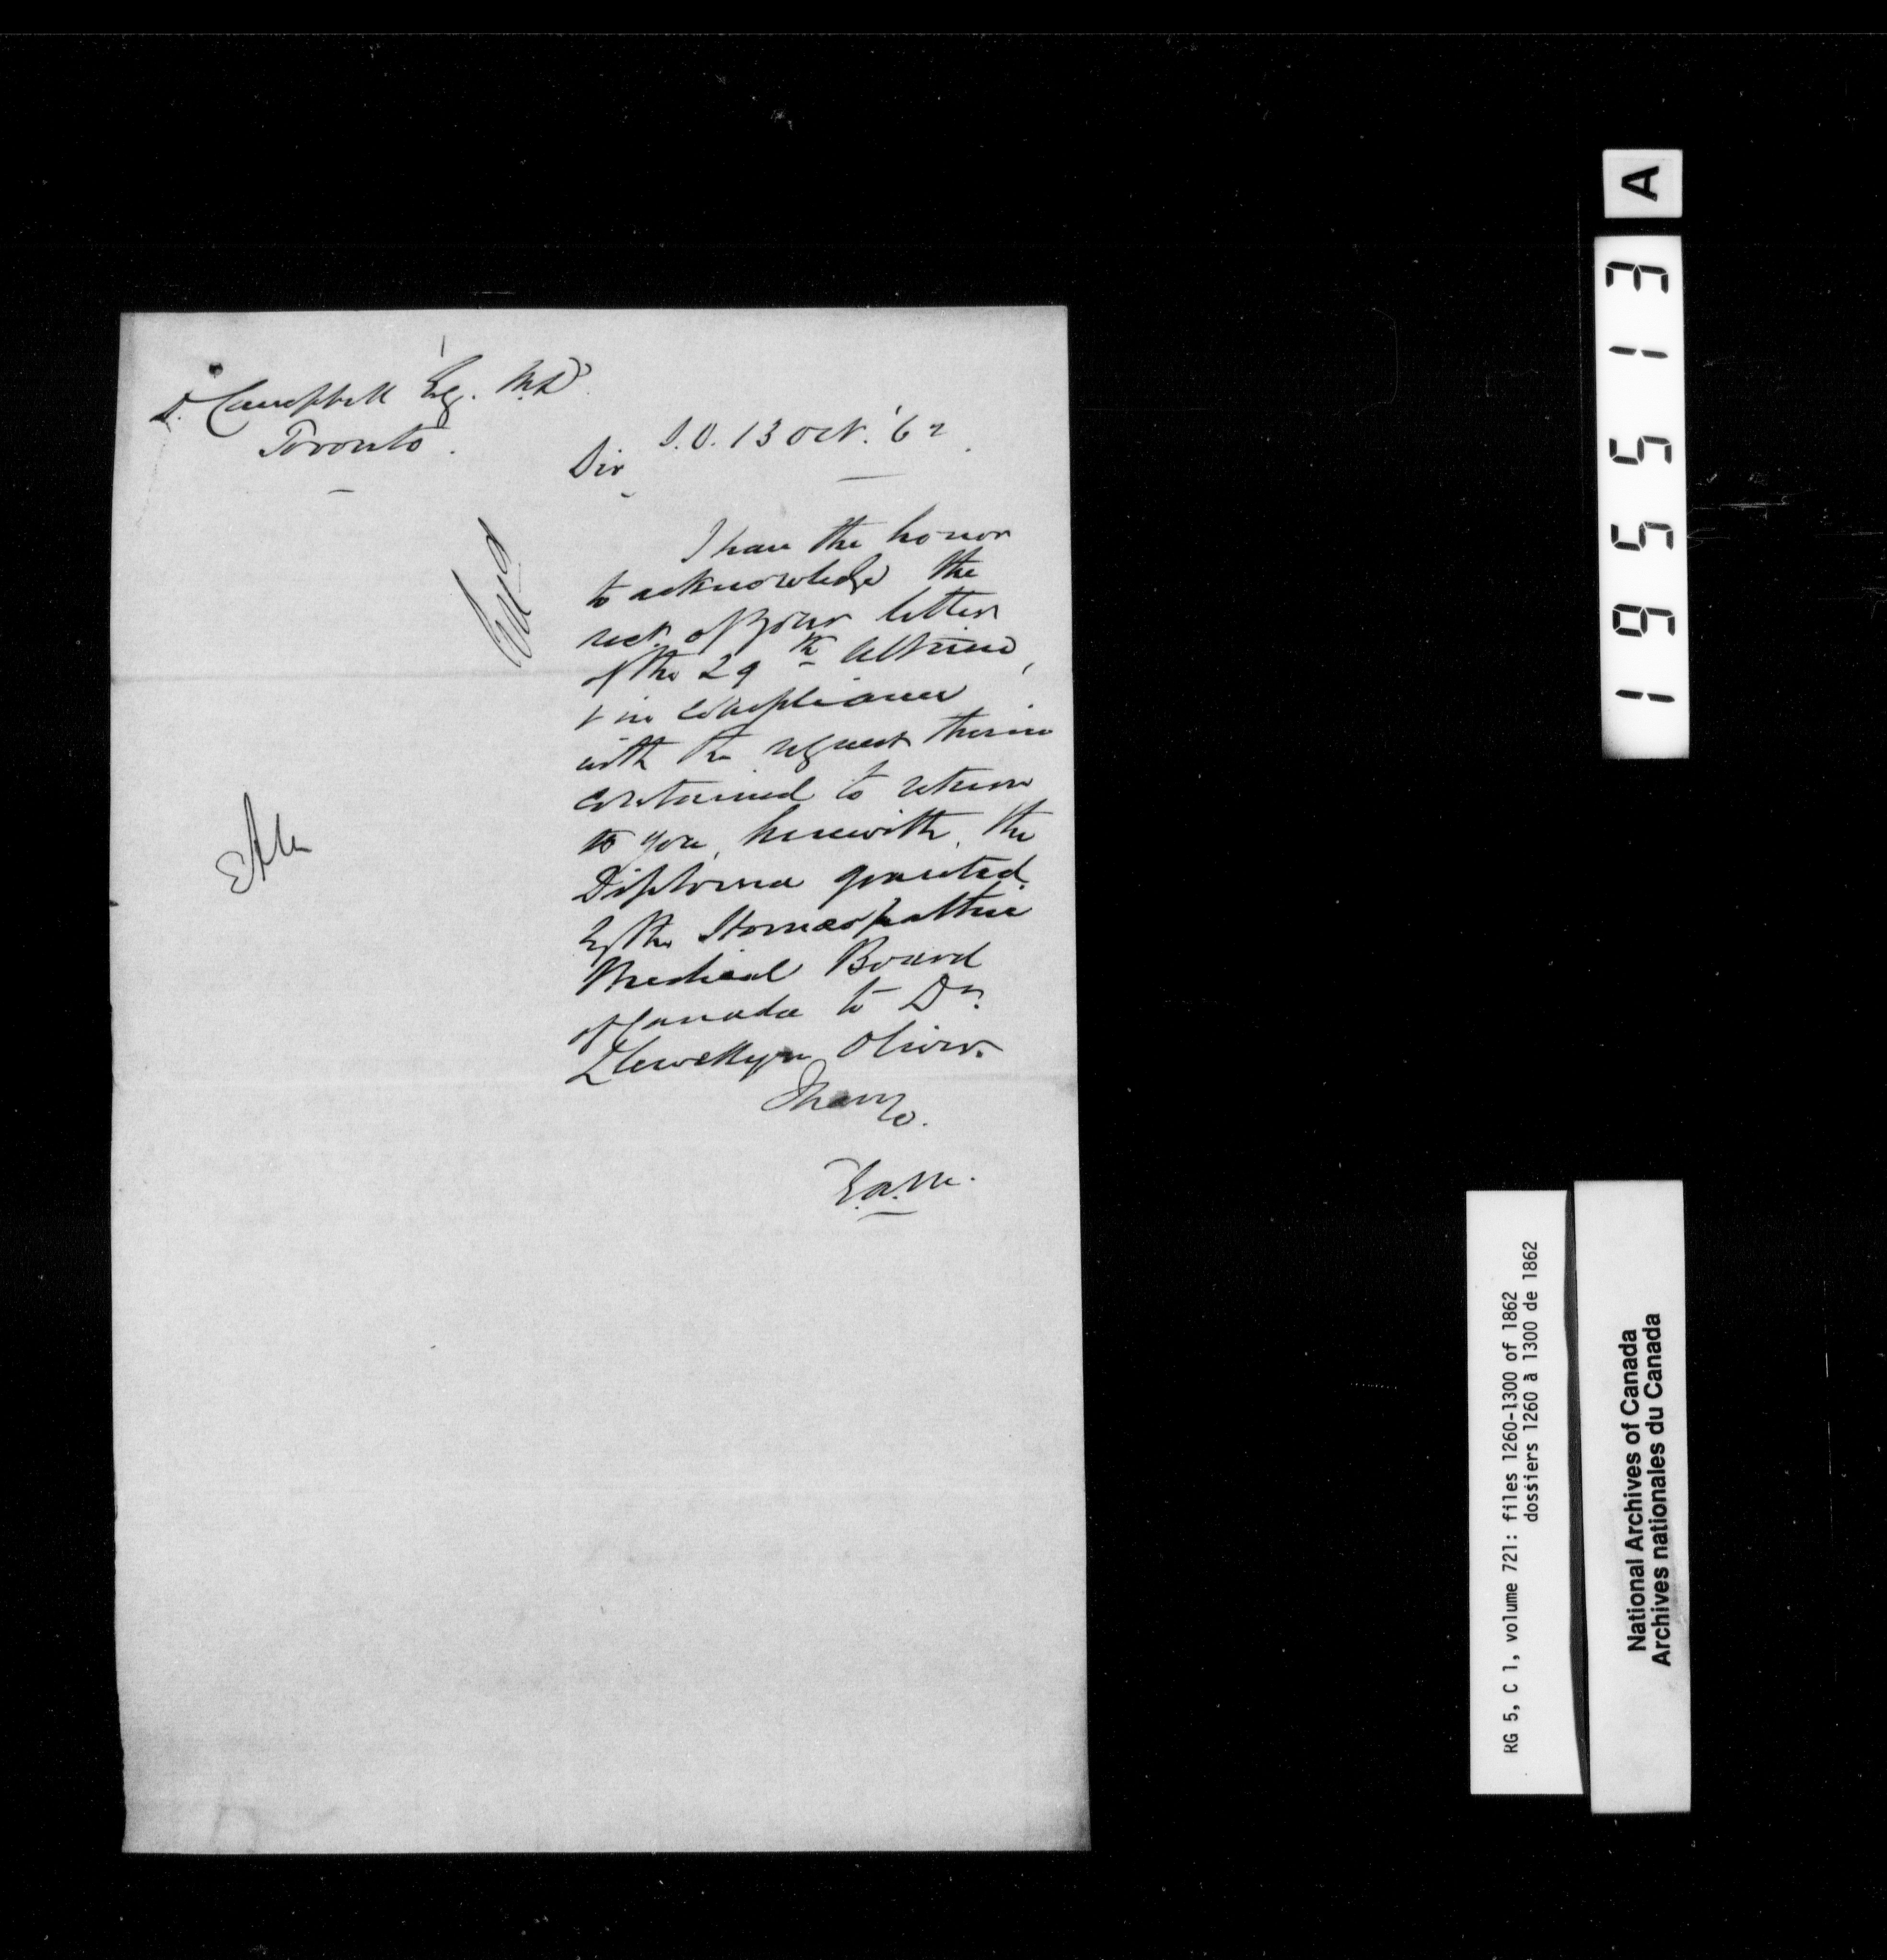 D. Campbell Esq. M.D.
Toronto.
S.O. 13 Oct. '62.
Sir
I have the honor
to acknowledge the
rect. of your letter
of the 29th Ultimo,
& in compliance
with the request therein
contained to return
to you, herewith, the
Diploma granted
by the Homœopathic
Medical Board
of Canada to Dr.
Llewellyn Oliver.
I have &c.
E.A.M.
EAM
A
195513
RG 5, C 1, volume 721: files 1260-1300 of 1862
dossiers 1260 à 1300 de 1862
National Archives of Canada
Archives nationales du Canada